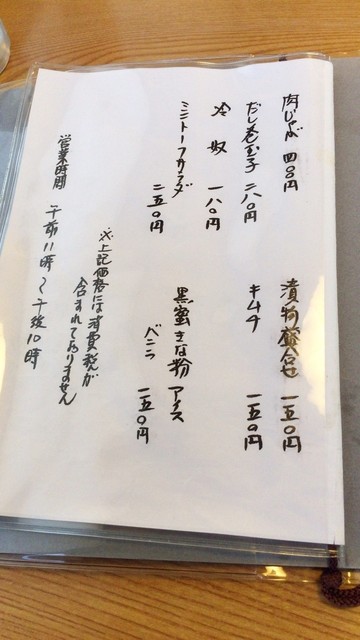 肉じゃが 四〇〇円
だし巻玉子 二八〇円
冷奴 一八〇円
ミニトーフサラダ
二五〇円
漬物盛合せ 一五〇円
キムチ 一五〇円
黒蜜きな粉アイス
バニラ 一五〇円
※上記価格には消費税が
含まれておりません
営業時間 午前11時〜午後10時